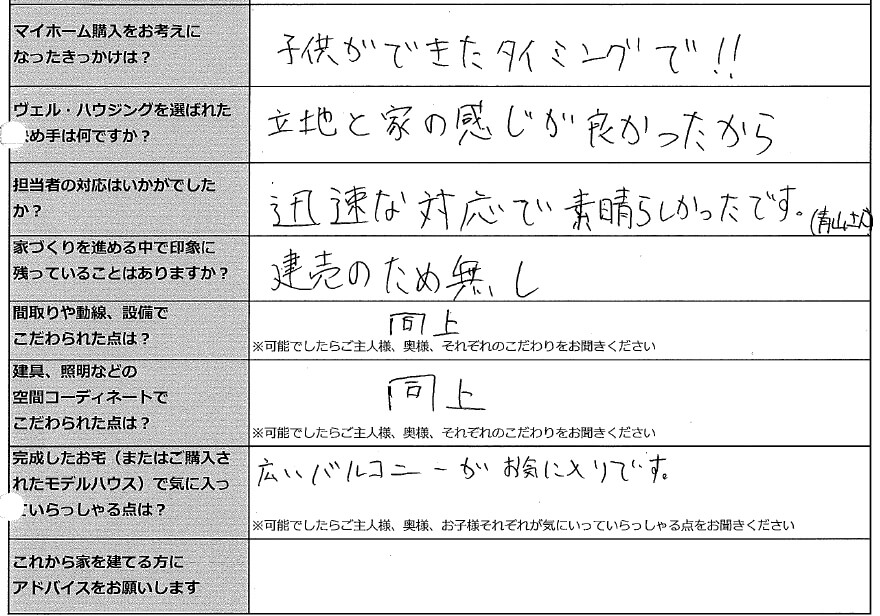 マイホーム購入をお考えに
なったきっかけは？
子供ができたタイミングで!!
ヴェル・ハウジングを選ばれた
め手は何ですか？
立地と家の感じが良かったから
担当者の対応はいかがでした
か？
迅速な対応で素晴らしかったです。(青山さん)
家づくりを進める中で印象に
残っていることはありますか？
建売のため無し
間取りや動線、設備で
こだわられた点は？
同上
※可能でしたらご主人様、奥様、それぞれのこだわりをお聞きください
建具、照明などの
空間コーディネートで
こだわられた点は？
同上
※可能でしたらご主人様、奥様、それぞれのこだわりをお聞きください
完成したお宅（またはご購入さ
れたモデルハウス）で気に入っ
ていらっしゃる点は？
広いバルコニーがお気に入りです。
※可能でしたらご主人様、奥様、お子様それぞれが気にいっていらっしゃる点をお聞きください
これから家を建てる方に
アドバイスをお願いします